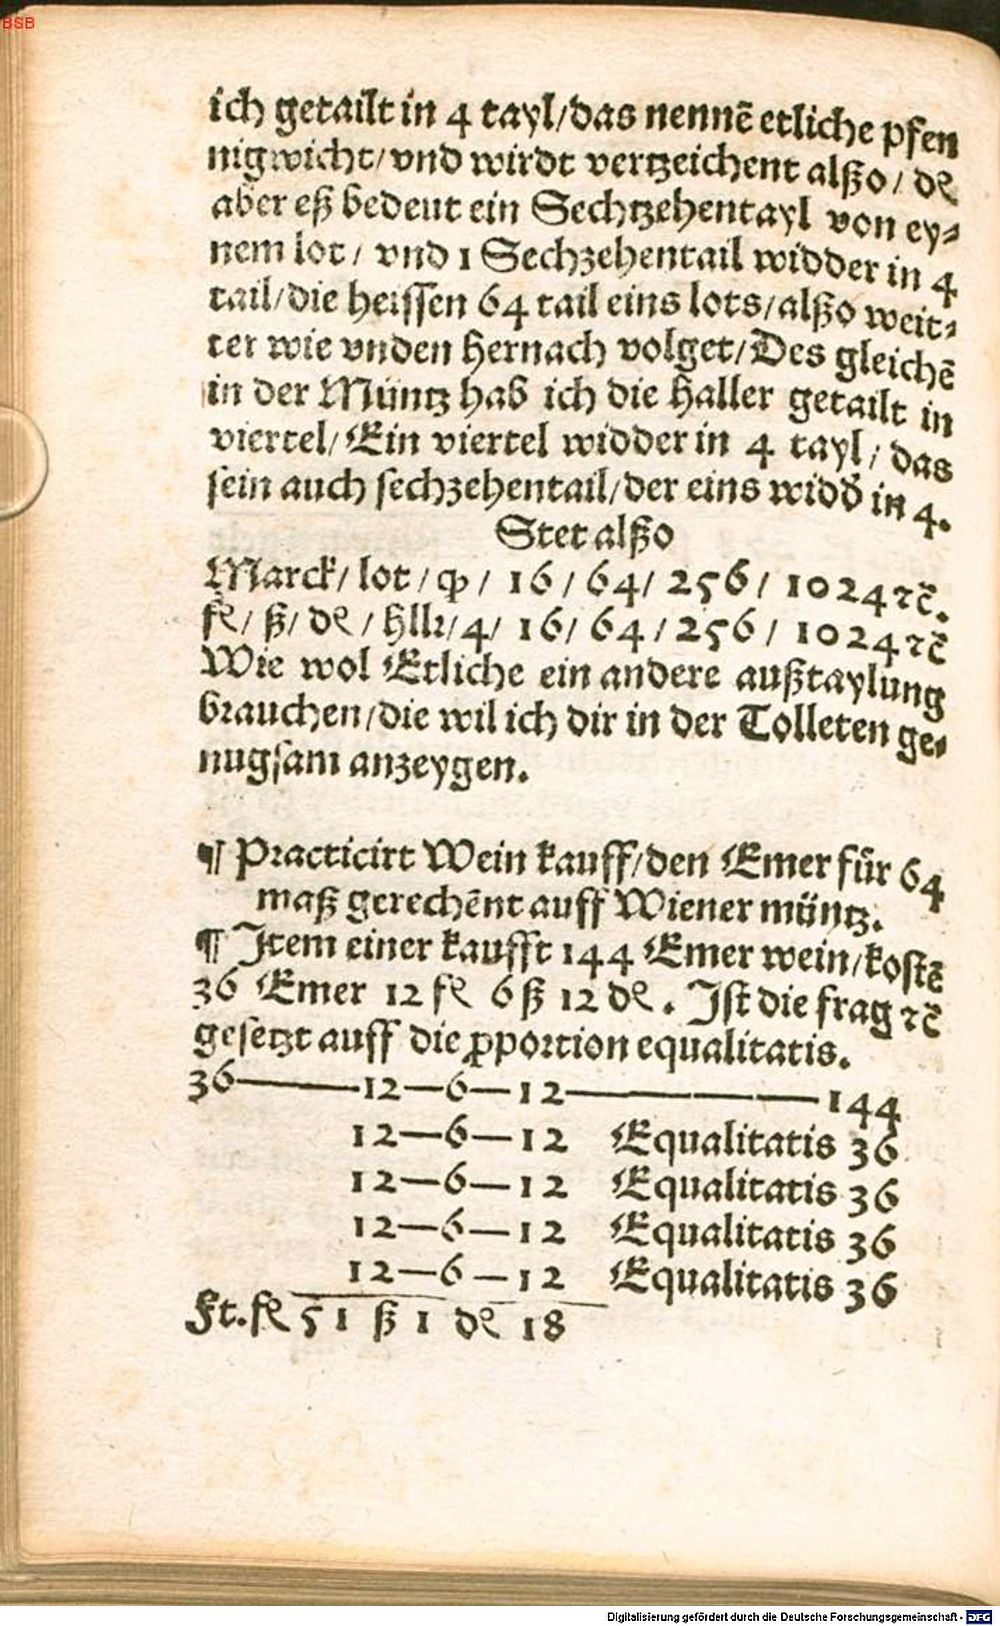 BSB
ich getailt in 4 tayl/das nennē etliche pfen
nigwicht/vnd wirdt vertzeichent alßo/ dₑ
aber eß bedeut ein Sechtzehentayl von ey⸗
nem lot/ vnd 1 Sechzehentail widder in 4
tail/die heissen 64 tail eins lots/alßo weit⸗
ter wie vnden hernach volget/Des gleichē
in der Müntz hab ich die haller getailt in
viertel/Ein viertel widder in 4 tayl/das
sein auch sechzehentail/der eins widd in 4.
Stet alßo
Marck/ lot/ qp/ 16/ 64/ 256/ 1024 ꝛc̄.
fl/ ß/ dₑ/ hllr/4/ 16/ 64/ 256/ 1024 ꝛc̄
Wie wol Etliche ein andere außtaylung
brauchen/die wil ich dir in der Tolleten ge⸗
nugsam anzeygen.
¶ Practicirt Wein kauff/den Emer für 64
maß gerechēnt auff Wiener müntz.
¶ Item einer kaufft 144 Emer wein/kostē
36 Emer 12 fl 6 ß 12 dₑ. Ist die frag ꝛc̄
gesetzt auff die ꝓportion equalitatis.
36——12—6—12————144
12—6—12 Equalitatis 36
12—6—12 Equalitatis 36
12—6—12 Equalitatis 36
12—6—12 Equalitatis 36
Ft. fl 51 ß 1 dₑ 18
Digitalisierung gefördert durch die Deutsche Forschungsgemeinschaft - DFG